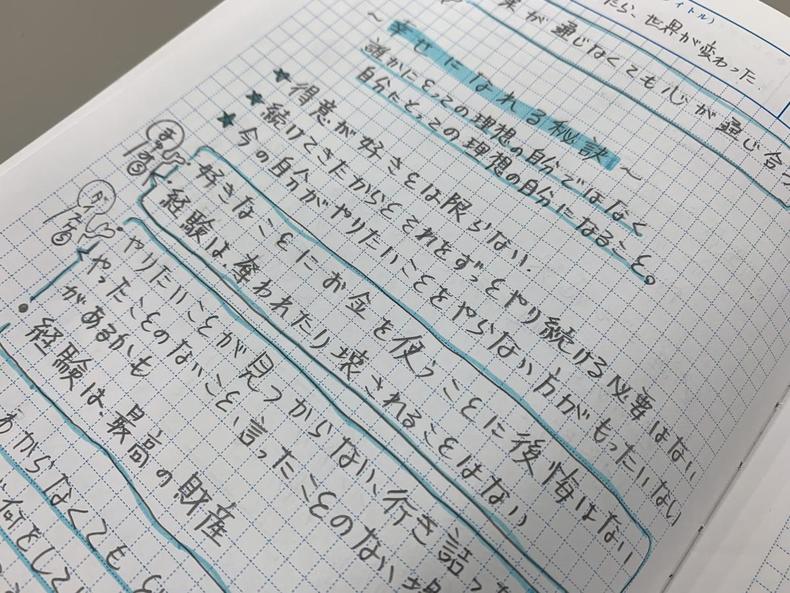 イトル)
たら、世界が変わった.
が通じなくても心が通じ合う
～幸せになれる秘訣～
誰かにとっての理想の自分ではなく
自分にとっての理想の自分になること。
★得意が好きとは限らない.
★続けてきたからとそれをずっとやり続ける必要はない
★今の自分がやりたいことをやらない方がもったいない
好きなことにお金を使うことに後悔はない
経験は、奪われたり壊されることはない
・やりたいことが見つからない、行き詰っ
やったことのないこと、言ったことのない
があるかも
・経験は、最高の財産
わからなくても
何をして